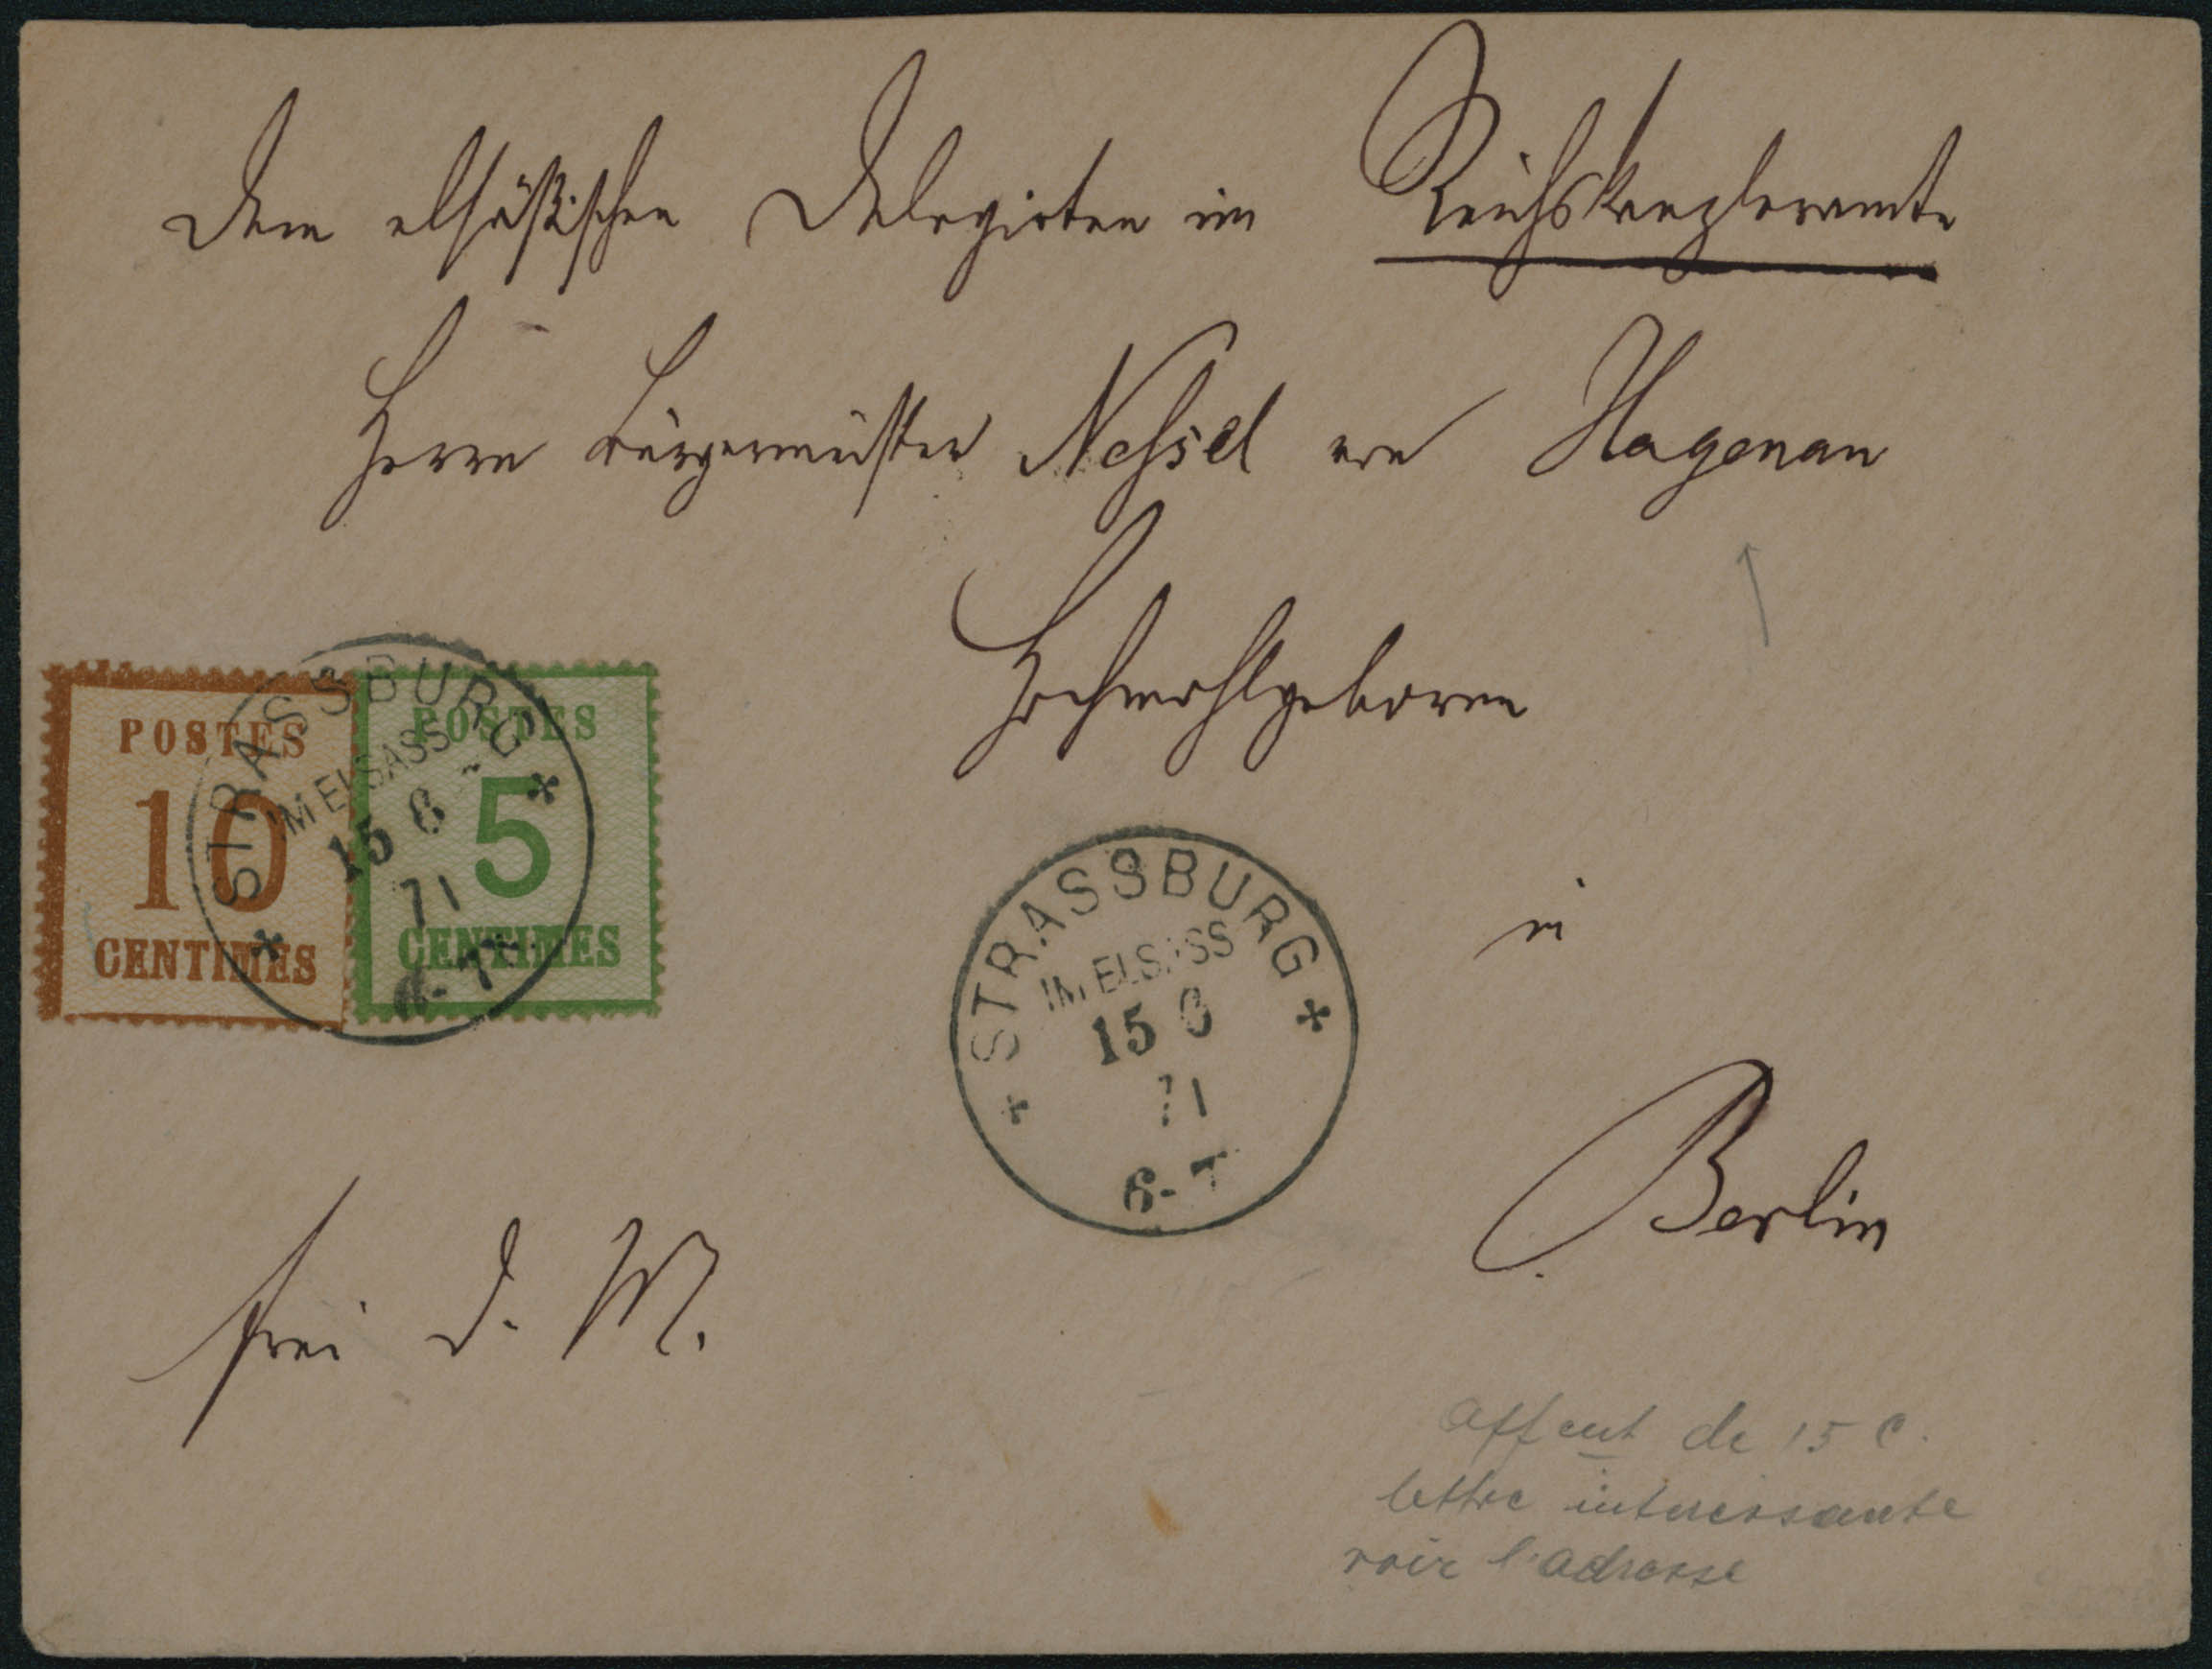 Dem elsäßischen Delegirten im Reichskanzleramte
Herrn Bürgermeister Nessel von Hagenau
Hochwohlgeboren
POSTES
10
CENTIMES
POSTES
5
CENTIMES
STRASSBURG
IM ELSASS
15 6
71
6-7
STRASSBURG
IM ELSASS
15 6
71
6-7
in
Berlin
frei d. M.
affent de 15 c.
lettre interessante
voir l'adresse